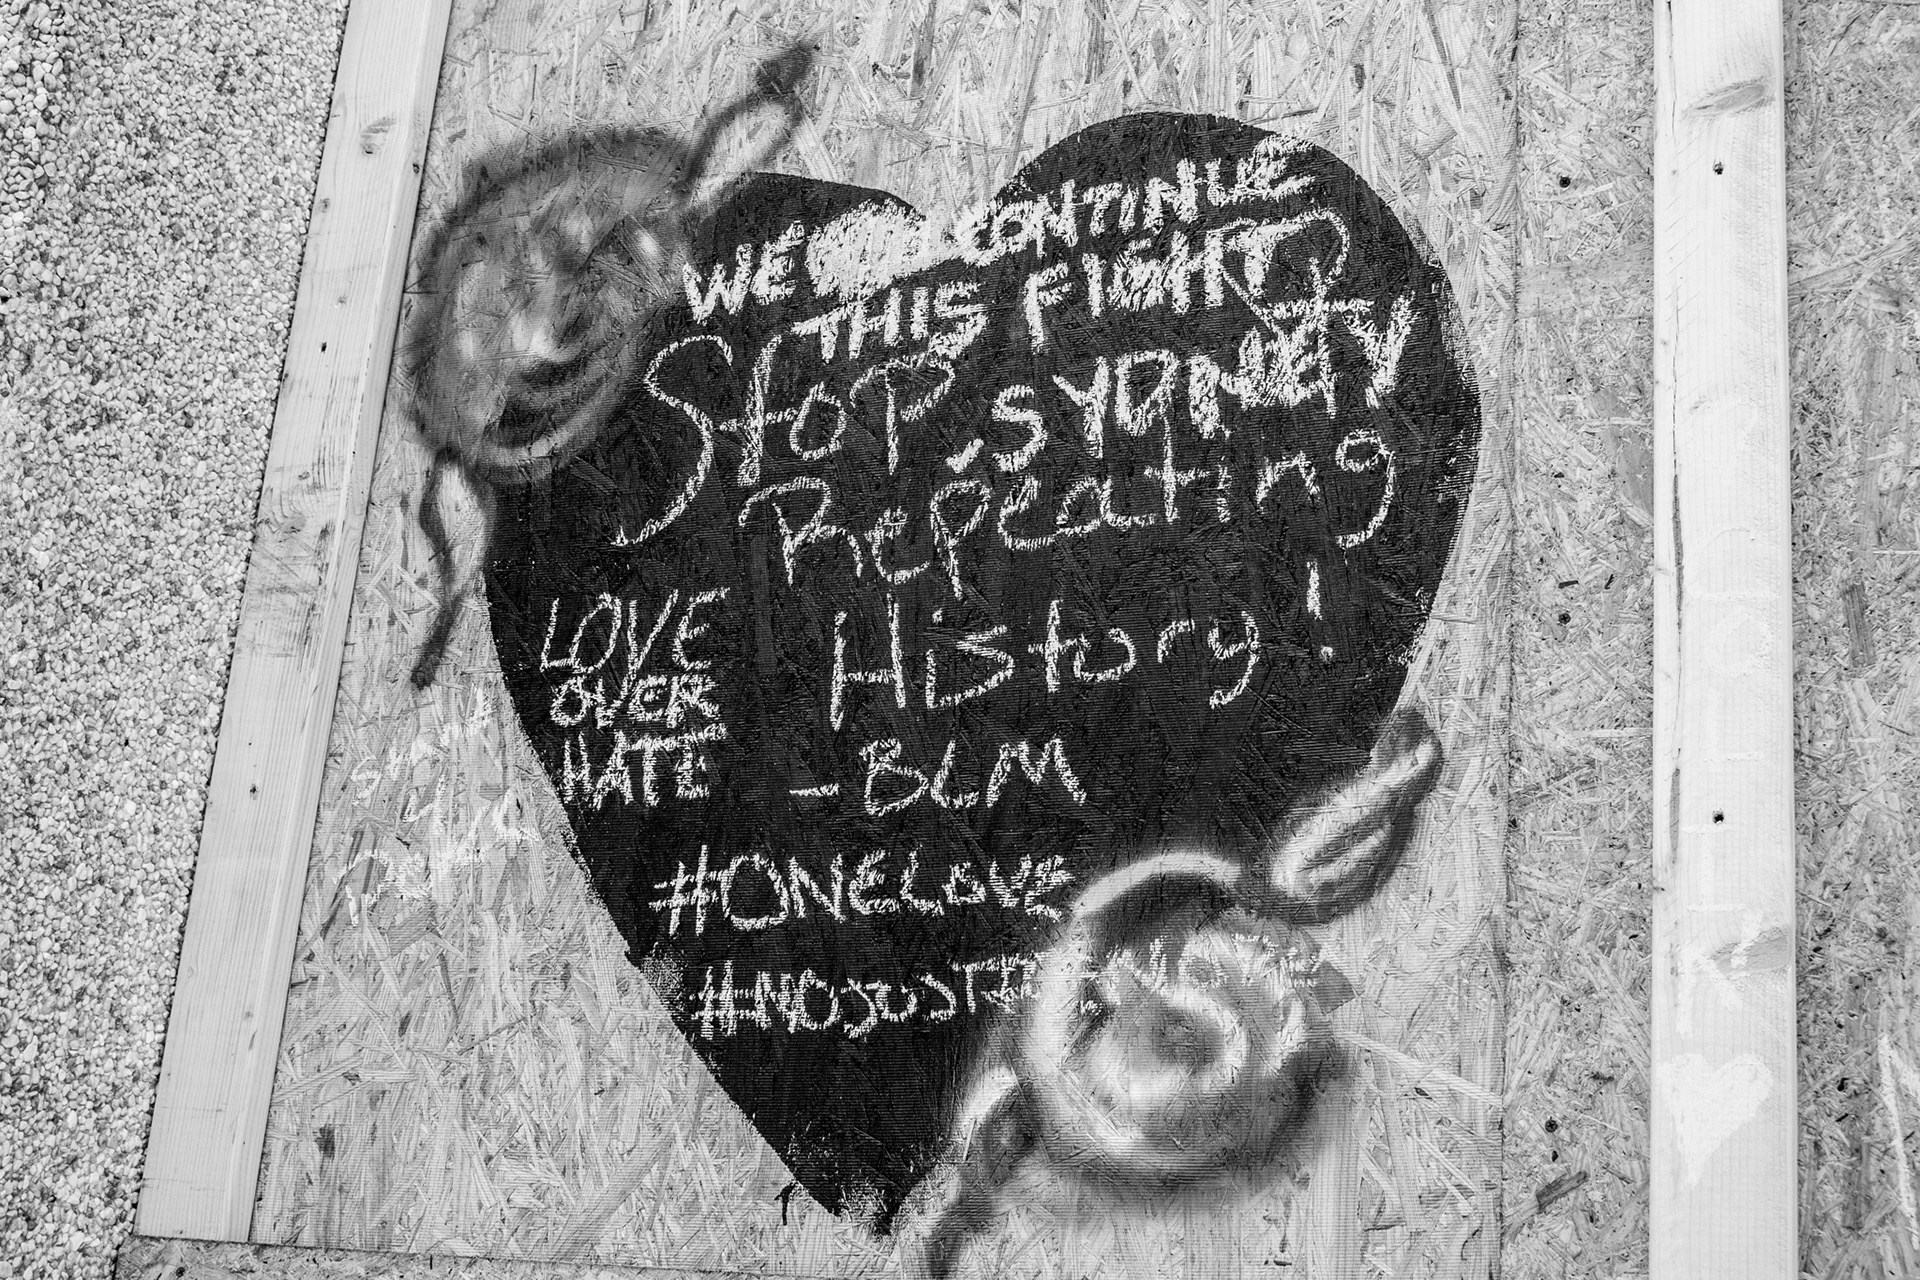 WE CONTINUE
THIS FIGHT
StoP SYDNEY
Repeating
History!
LOVE
OVER
HATE
-BLM
#ONELOVE